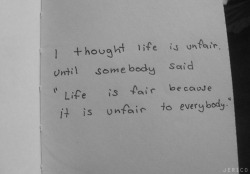 I thought life is unfair,
until somebody said
"Life is fair because
it is unfair to everybody."